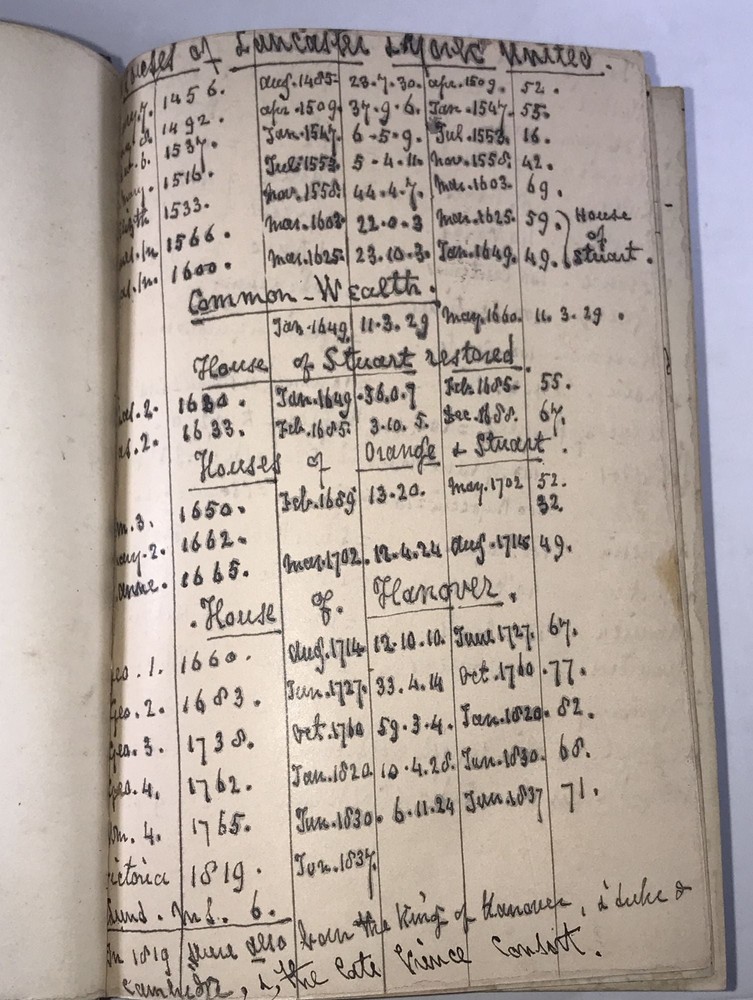 Houses of Lancaster & York United.
1456. Aug. 1485. 23.7.30. apr. 1509. 52.
1492. apr. 1509. 37.9.6. Jan. 1547. 55.
1537. Jan. 1547. 6-5.9. Jul. 1553. 16.
1516. Jul. 1553. 5-4.11. nov. 1558. 42.
1533. nov. 1558. 44.4.7. mar. 1603. 69.
1566. mar. 1603. 22.0.3 mar. 1625. 59. House
of
1600. mar. 1625. 23.10.3. Jan. 1649. 49. Stuart.
Common-Wealth.
Jan. 1649. 11.3.29 may. 1660. 11.3.29.
House of Stuart restored.
1630. Jan. 1649. 36.0.7 Feb. 1685. 55.
as. 2. 1633. Feb. 1685. 3.10.5. Dec. 1688. 67.
Houses of Orange & Stuart.
m. 3. 1650. Feb. 1689 13.20. may. 1702 52.
ary. 2. 1662. 32.
anne. 1665. mar. 1702. 12.4.24 Aug. 1714 49.
House of Hanover.
eo. 1. 1660. Aug. 1714 12.10.10. June 1727. 67.
Geo. 2. 1683. Jun. 1727. 33.4.14 Oct. 1760. 77.
Geo. 3. 1738. Oct. 1760 59.3.4. Jan. 1820. 82.
Geo. 4. 1762. Jan. 1820. 10.4.28. Jun. 1830. 68.
m. 4. 1765. Jun. 1830. 6.11.24 Jun. 1837 71.
ictoria 1819. Jun. 1837.
6.
In 1819 were also born the King of Hanover, & Duke of
Cambridge, & the late Prince Consort.